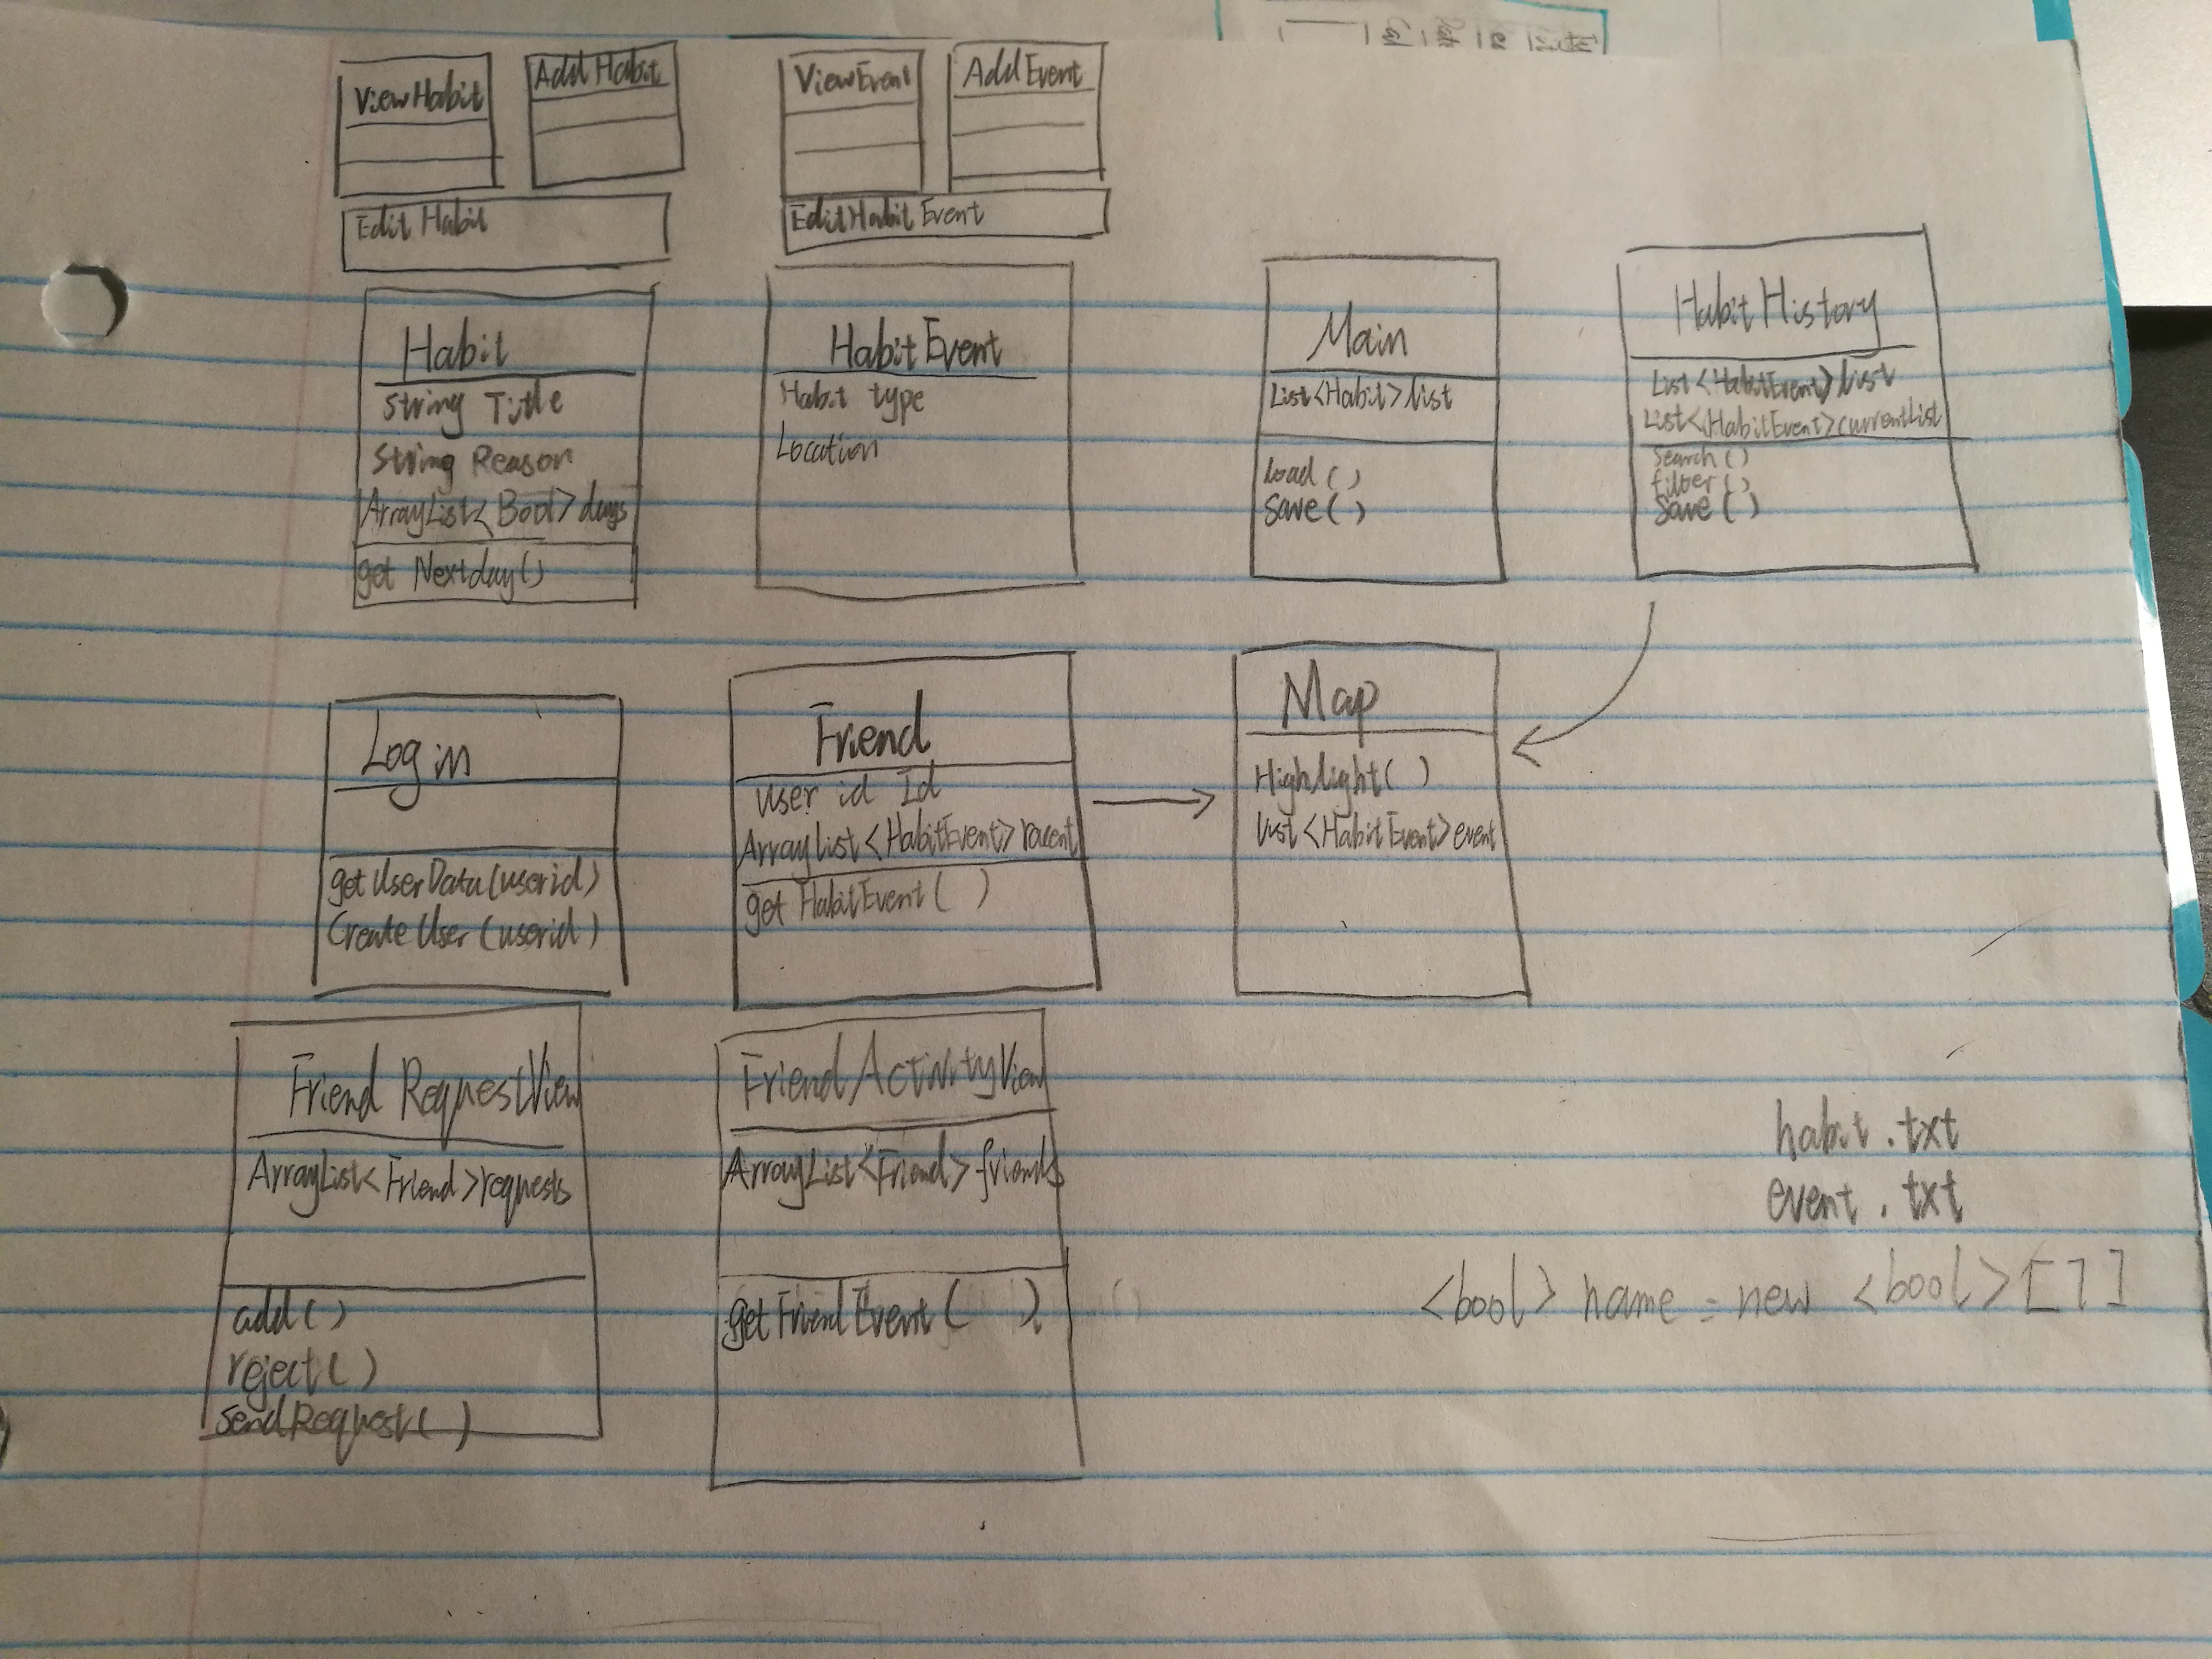 ViewHabit
Add Habit
ViewEvent
AddEvent
Edit Habit
EditHabit Event
Habit
String Title
String Reason
ArrayList<Bool>days
get Nextday()
HabitEvent
Habit type
Location
Main
List<Habit>list
load()
Save()
HabitHistory
List<HabitEvent>list
List<HabitEvent>currentList
Search()
filter()
Save()
Login
getUserData(userid)
CreateUser(userid)
Friend
User id Id
ArrayList<HabitEvent>recent
get HabitEvent( )
Map
Highlight( )
List<HabitEvent>event
Friend RequestView
ArrayList<Friend>requests
add()
reject()
sendRequest()
FriendActivityView
ArrayList<Friend>friends
getFriendEvent( )
habit.txt
event.txt
<bool> name = new <bool>[7]